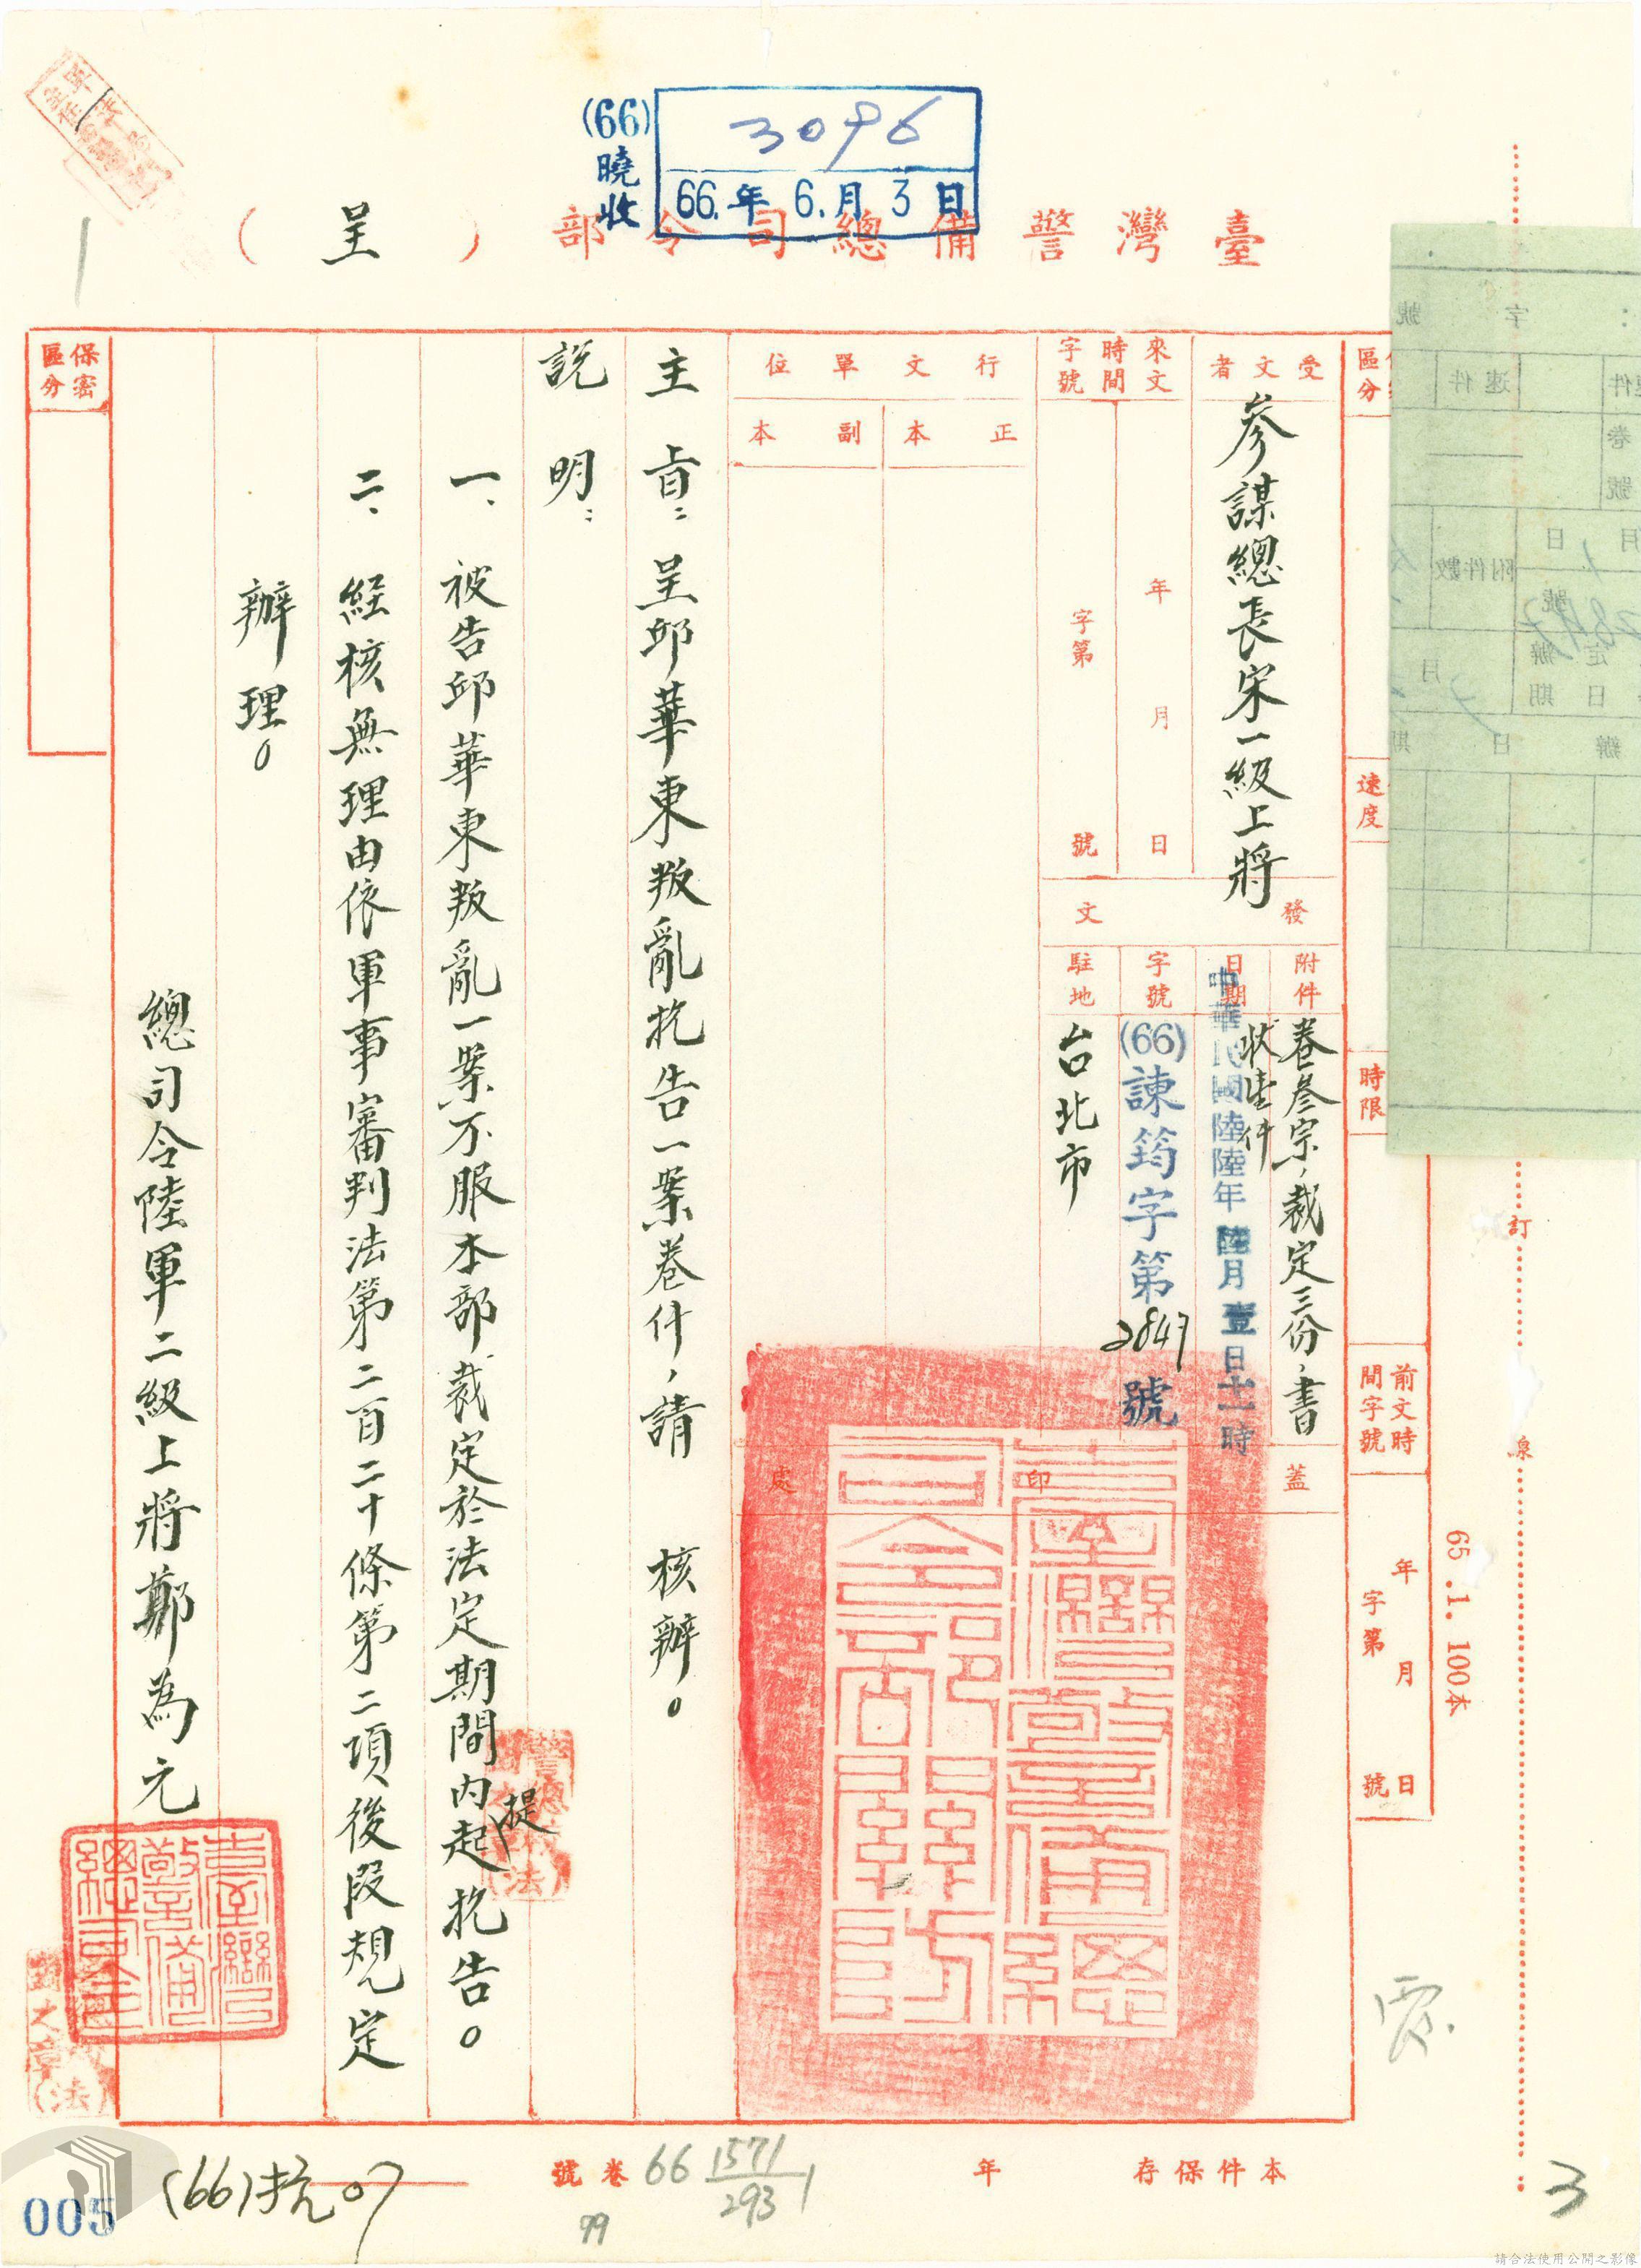 臺灣警備總司令部（呈）
(66)曉收
3096
66.年6.月3日
受文者
參謀總長宋一級上將
來文時間字號
年月日
字第號
行文單位
正本
副本
發文
附件
卷叁宗、裁定三份、書
狀陸件
日期
中華民國陸陸年陸月壹日十一時
字號
(66)諫筠字第2847號
駐地
台北市
蓋印處
速度
時限
前文時間字號
年月日
字第號
保密區分
主旨：呈邱華東叛亂抗告一案卷件，請　核辦。
說明：
一、被告邱華東叛亂一案不服本部裁定於法定期間內提起抗告。
二、經核無理由依軍事審判法第二百二十條第二項後段規定
辦理。
總司令陸軍二級上將鄭為元
訂
線
65.1.100本
本件保存年
卷號
66 1571/293 1
99
(66)抗07
005
3
請合法使用公開之影像